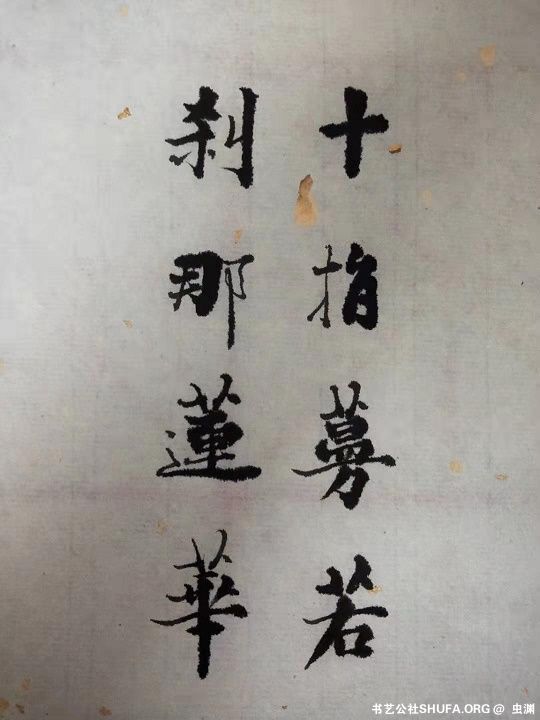 十指蔓若
刹那蓮華
书艺公社SHUFA.ORG @ 虫渊